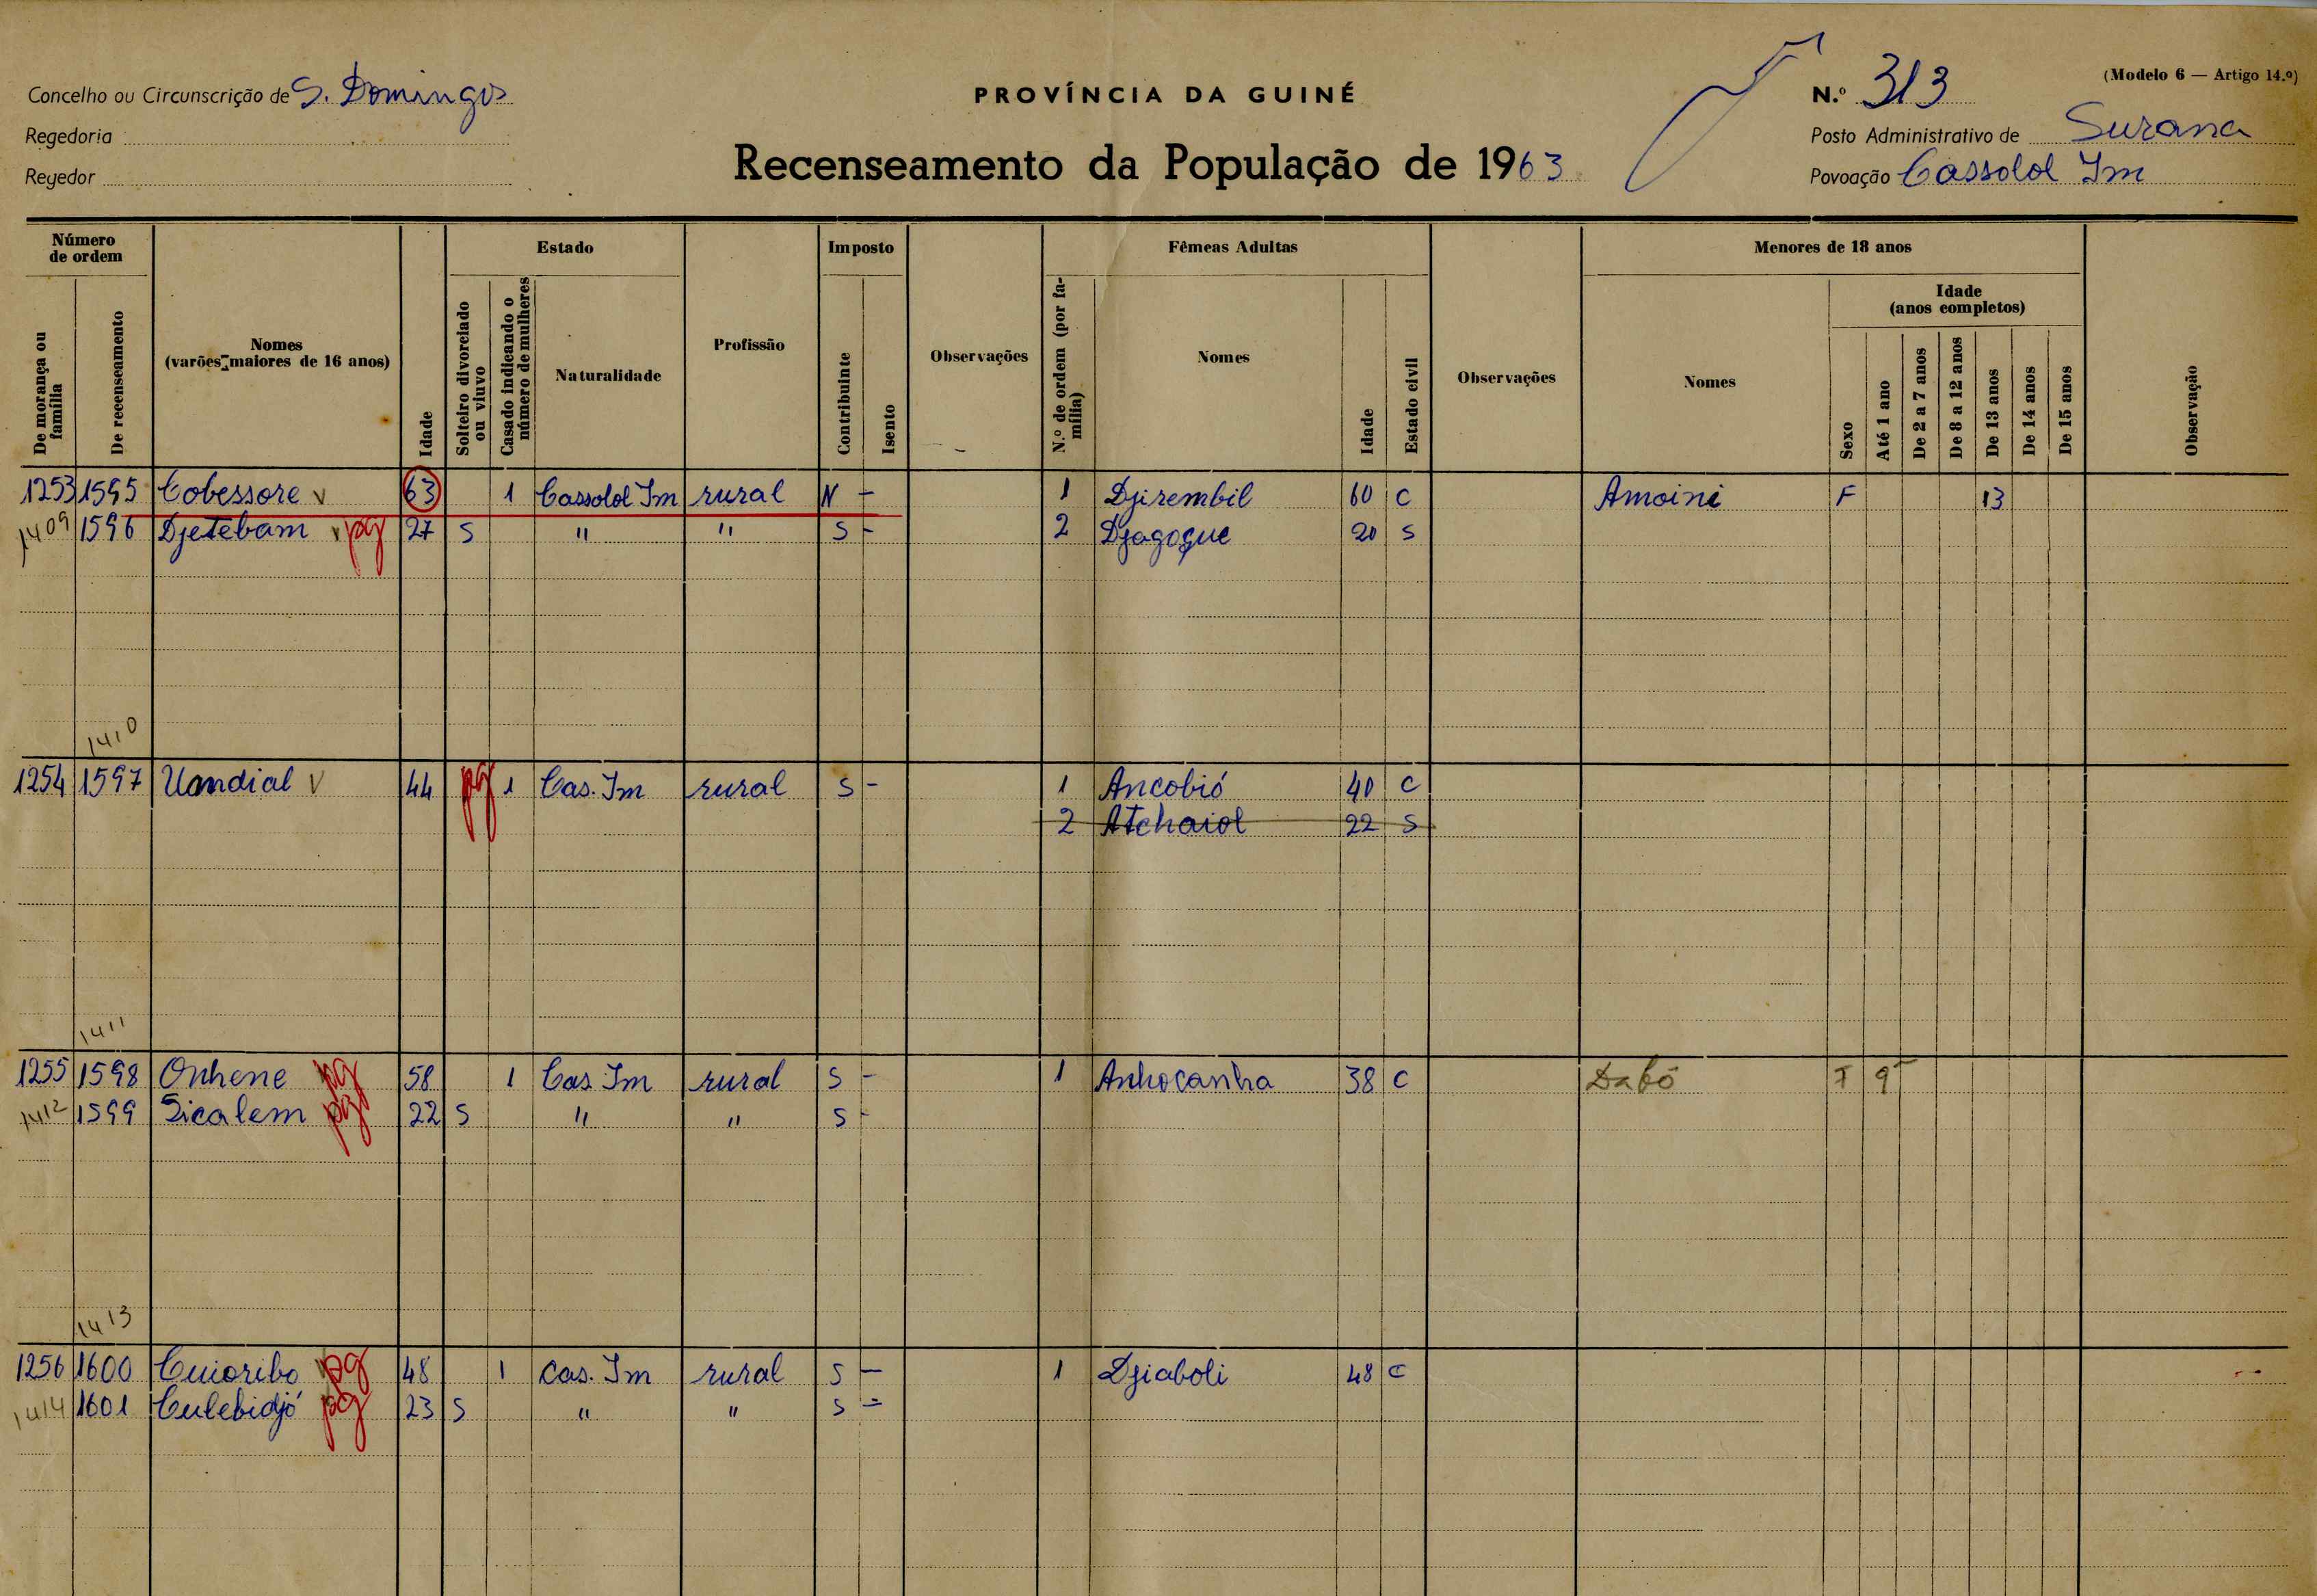 Concelho ou Circunscrição de S. Domingos
Regedoria
Regedor
PROVÍNCIA DA GUINÉ
Recenseamento da População de 1963
(Modelo 6 — Artigo 14.º)
N.º 313
Posto Administrativo de Suzana
Povoação Cassolol Im
Número de ordem
De morança ou família
De recenseamento
Nomes (varões maiores de 16 anos)
Idade
Estado
Solteiro divorciado ou viuvo
Casado indicando o número de mulheres
Naturalidade
Profissão
Imposto
Contribuinte
Isento
Observações
Fêmeas Adultas
N.º de ordem (por família)
Nomes
Idade
Estado civil
Observações
Menores de 18 anos
Nomes
Sexo
Idade (anos completos)
Até 1 ano
De 2 a 7 anos
De 8 a 12 anos
De 13 anos
De 14 anos
De 15 anos
Observação
1253 1595 Cobessore v 63 1 Cassolol Im rural N - 1 Djirembil 60 C Amoini F 13
1409 1596 Djetebam v pg 27 S " " S - 2 Djagogue 20 S
1410
1254 1597 Uandial v 44 pg 1 Cas. Im rural S - 1 Ancobió 40 C
2 Atchaiol 22 S
1411
1255 1598 Onhene pg 58 1 Cas Im rural S - 1 Anhocanha 38 C Dabó F 9
1412 1599 Sicalem pg 22 S " " S -
1413
1256 1600 Cuioribo pg 48 1 Cas. Im rural S - 1 Djiaboli 48 C
1414 1601 Culebidjó pg 23 S " " S =